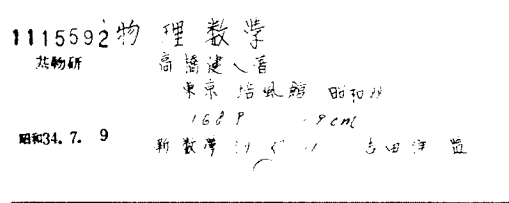 1115592 物理数学
共物研
高橋健人著
東京 培風館 昭和33
168P 19cm
昭和34.7.9
新数学シリーズ 吉田洋一監